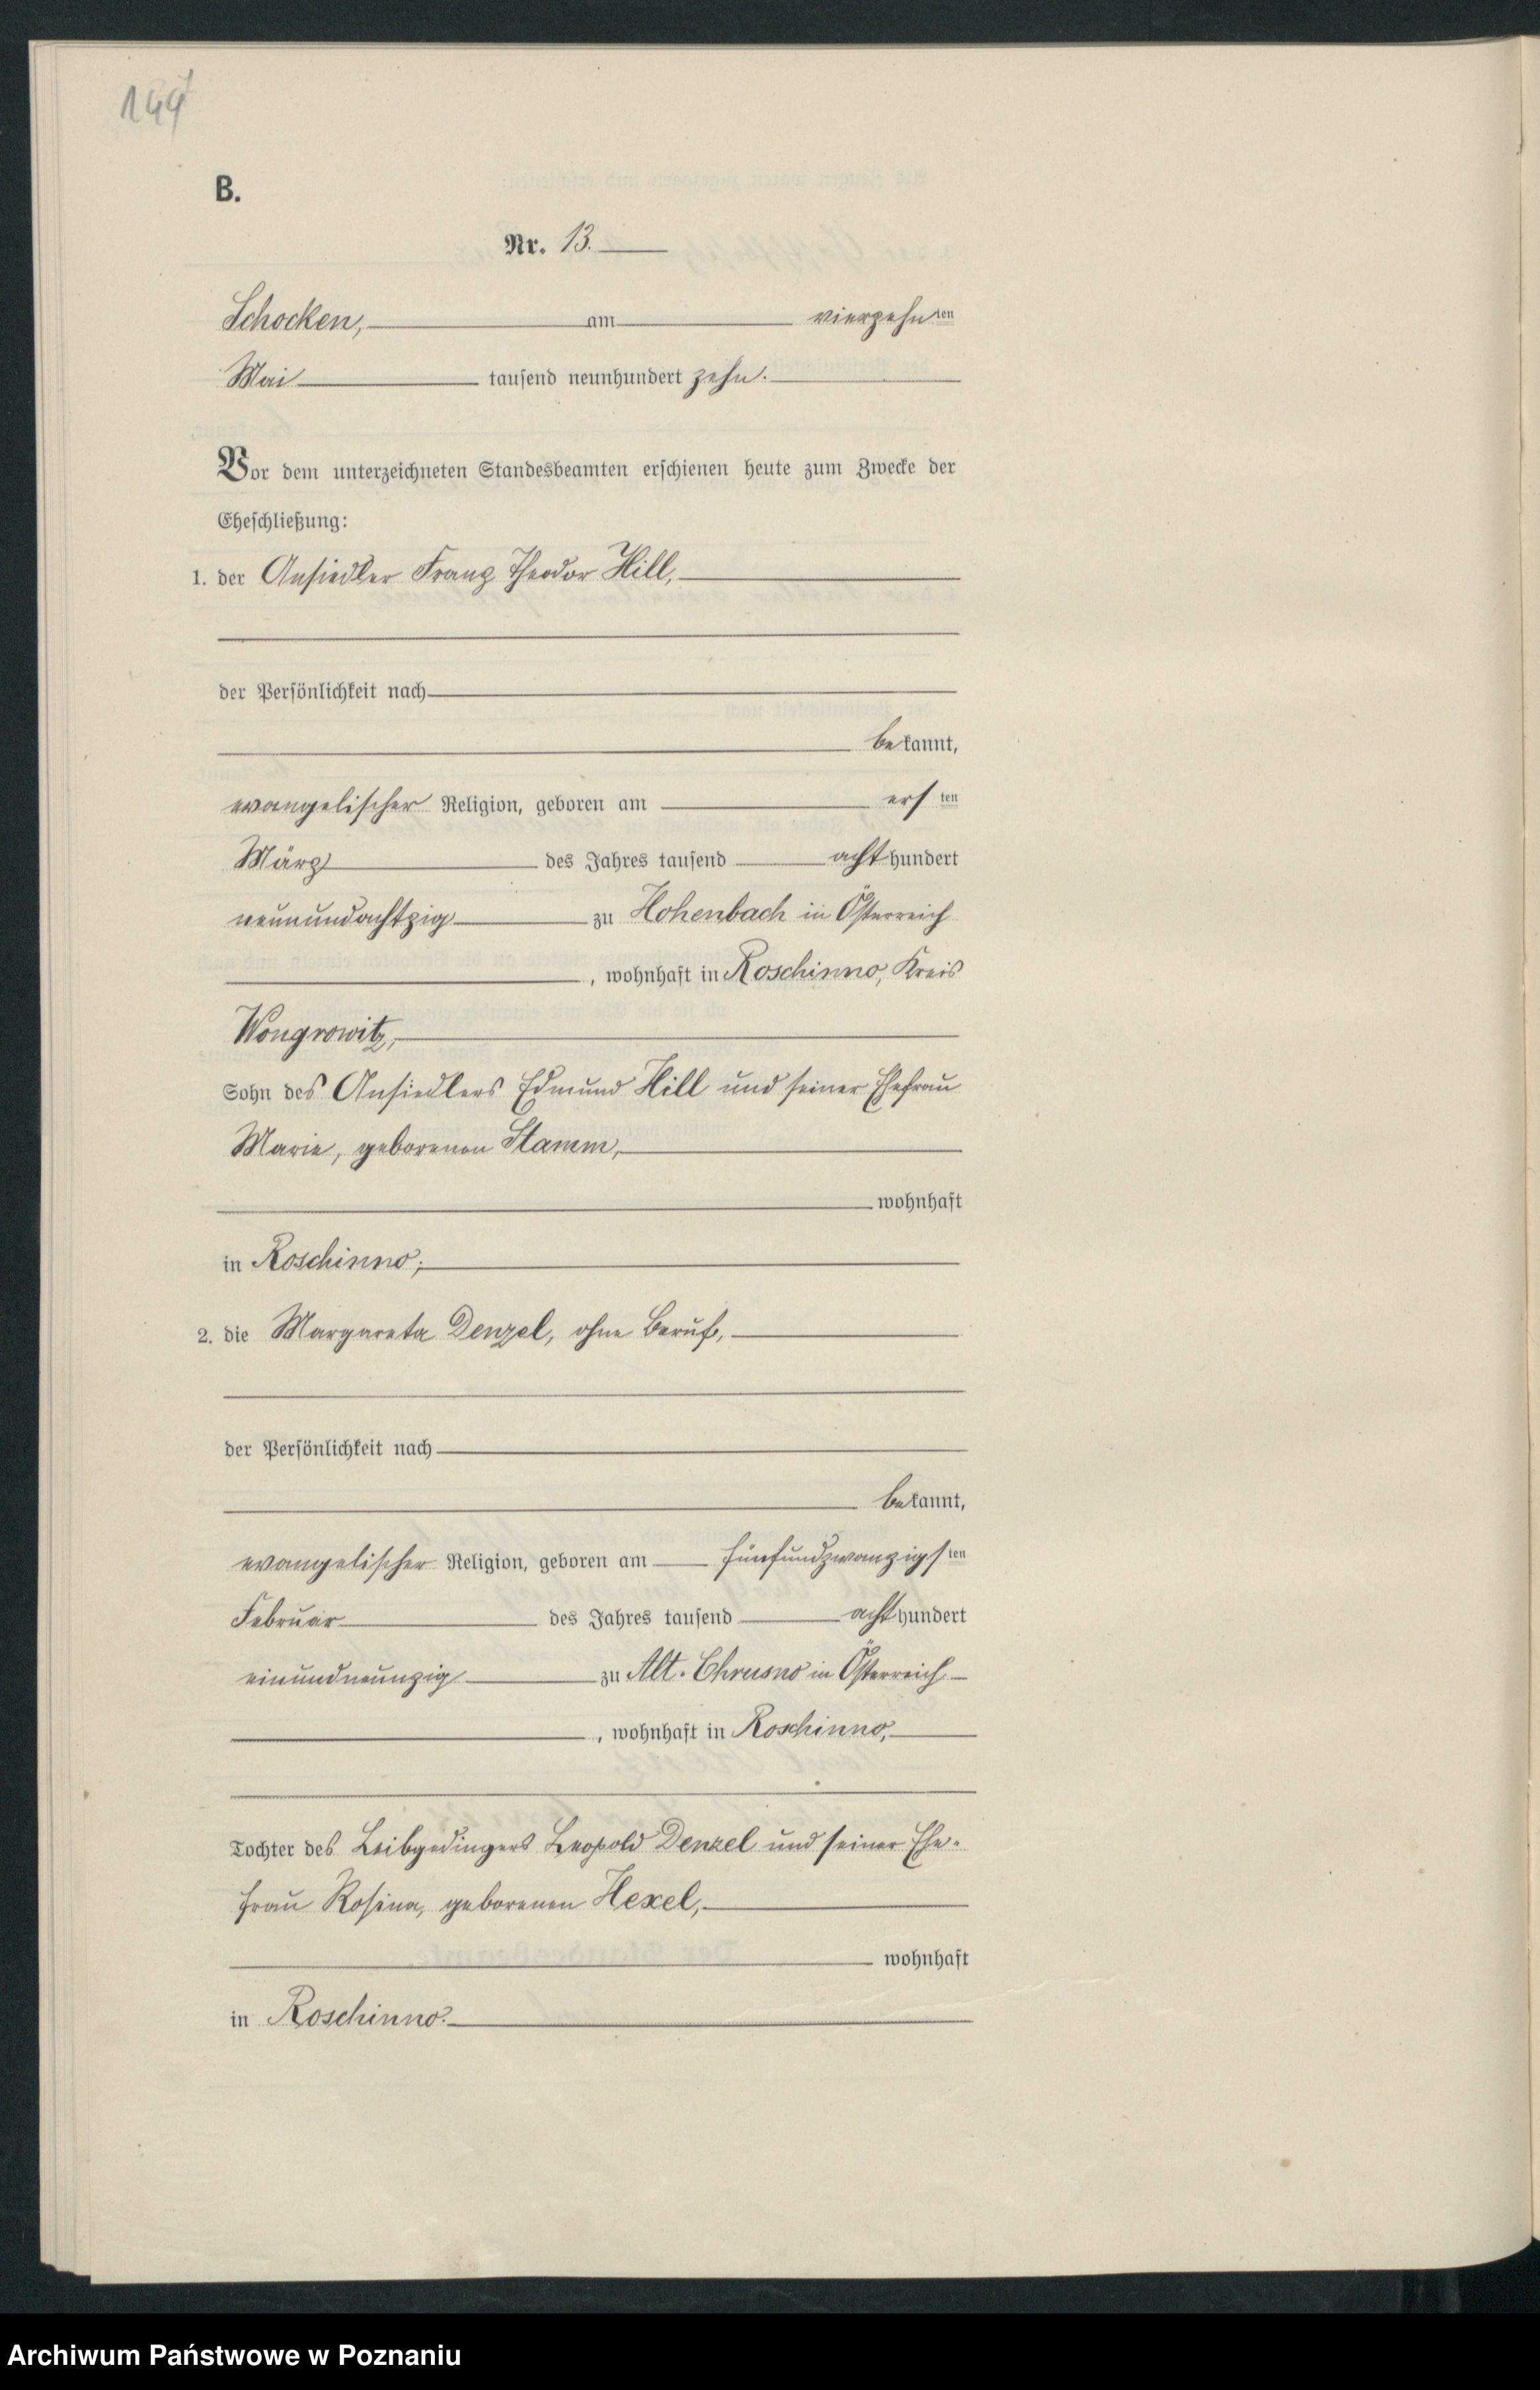 144
B.
Nr. 13.
Schocken, am vierzehnten
Mai tausend neunhundert zehn.
Vor dem unterzeichneten Standesbeamten erschienen heute zum Zwecke der
Eheschließung:
1. der Ansiedler Franz Theodor Hill,
der Persönlichkeit nach
bekannt,
evangelischer Religion, geboren am ersten
März des Jahres tausend achthundert
neunundachtzig zu Hohenbach in Österreich
, wohnhaft in Roschinno, Kreis
Wongrowitz,
Sohn des Ansiedlers Edmund Hill und seiner Ehefrau
Marie, geborenen Stamm,
wohnhaft
in Roschinno;
2. die Margareta Denzel, ohne Beruf,
der Persönlichkeit nach
bekannt,
evangelischer Religion, geboren am fünfundzwanzigsten
Februar des Jahres tausend achthundert
einundneunzig zu Alt-Chrusno in Österreich
, wohnhaft in Roschinno,
Tochter des Leibgedingers Leopold Denzel und seiner Ehe-
frau Rosina, geborenen Hexel,
wohnhaft
in Roschinno.
Archiwum Państwowe w Poznaniu